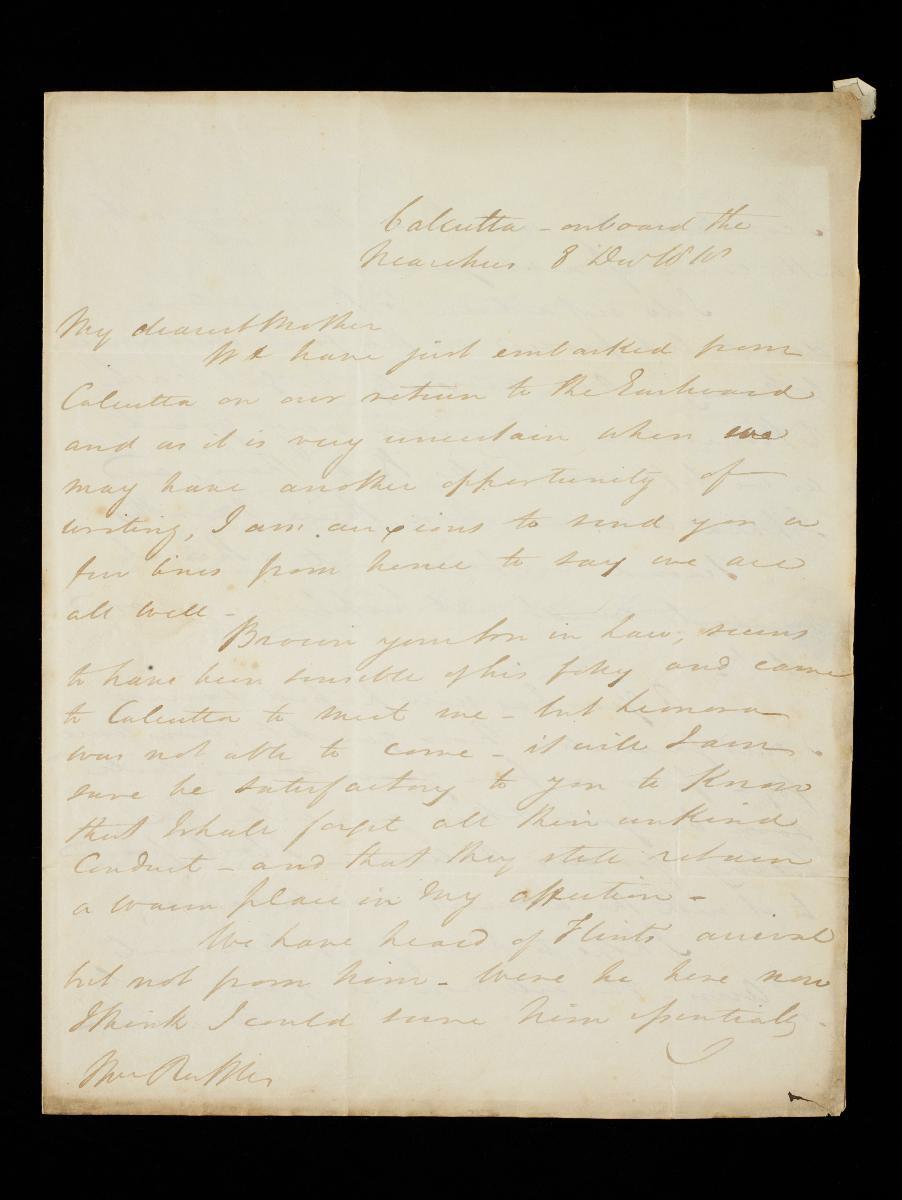 Calcutta - onboard the
Nearchus 8 Decr 1818
My dearest Mother
We have just embarked from
Calcutta on our return to the Eastward
and as it is very uncertain when we
may have another opportunity of
writing, I am anxious to send you a
few lines from hence to say we are
all well -
Brown your Son in Law, seems
to have been sensible of his folly and came
to Calcutta to meet me - but Leonora
was not able to come - it will I am
sure be satisfactory to you to know
that I shall forget all their unkind
Conduct - and that they still retain
a warm place in My affection -
We have heard of Flint's arrival
but not from him - Were he here now
I think I could serve him essentially -
Mrs Raffles